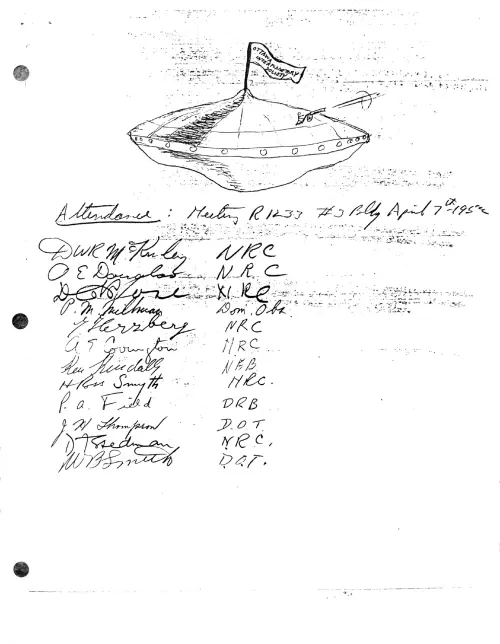 OTTAWA
INTERPLANETARY
SOCIETY
Attendance : Meeting R 1233 #3 Bldg April 7th 1952
DWR McKinley NRC
A E Douglas N.R.C
D C Rose NRC
P.M. Millman Dom. Obs
G Herzberg NRC
A E Covington NRC
H Ross Smyth NRC.
P. A. Field DRB
J W Thompson D.O.T.
N.R.C.
W B Smith D.O.T.